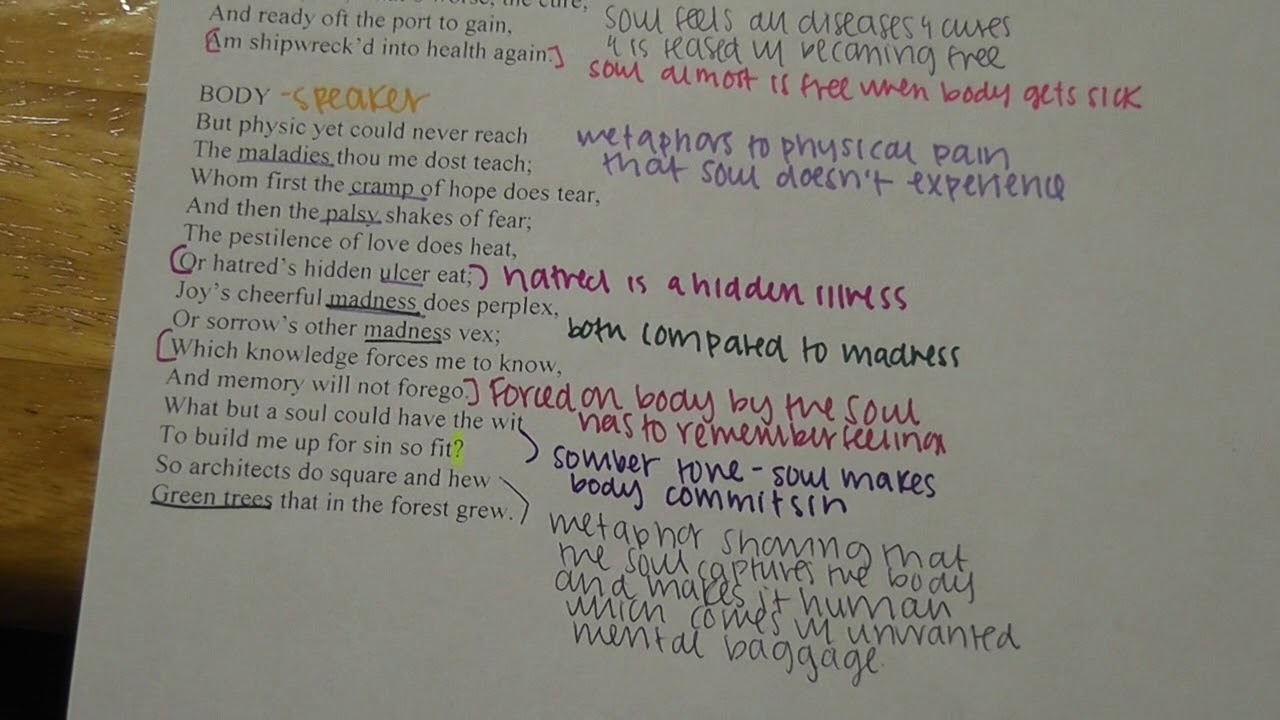 the cure,
And ready oft the port to gain,
soul feels all diseases & cures
[Am shipwreck'd into health again.]
& is teased w becoming free
soul almost is free when body gets sick
BODY - speaker
But physic yet could never reach
metaphors to physical pain
The maladies thou me dost teach;
that soul doesn't experience
Whom first the cramp of hope does tear,
And then the palsy shakes of fear;
The pestilence of love does heat,
(Or hatred's hidden ulcer eat;) hatred is a hidden illness
Joy's cheerful madness does perplex,
Or sorrow's other madness vex;
both compared to madness
[Which knowledge forces me to know,
And memory will not forego.] Forced on body by the soul
What but a soul could have the wit
has to remember feelings
To build me up for sin so fit?
somber tone - soul makes
body commit sin
So architects do square and hew
Green trees that in the forest grew.
metaphor showing that
the soul captures the body
and makes it human
which comes w unwanted
mental baggage